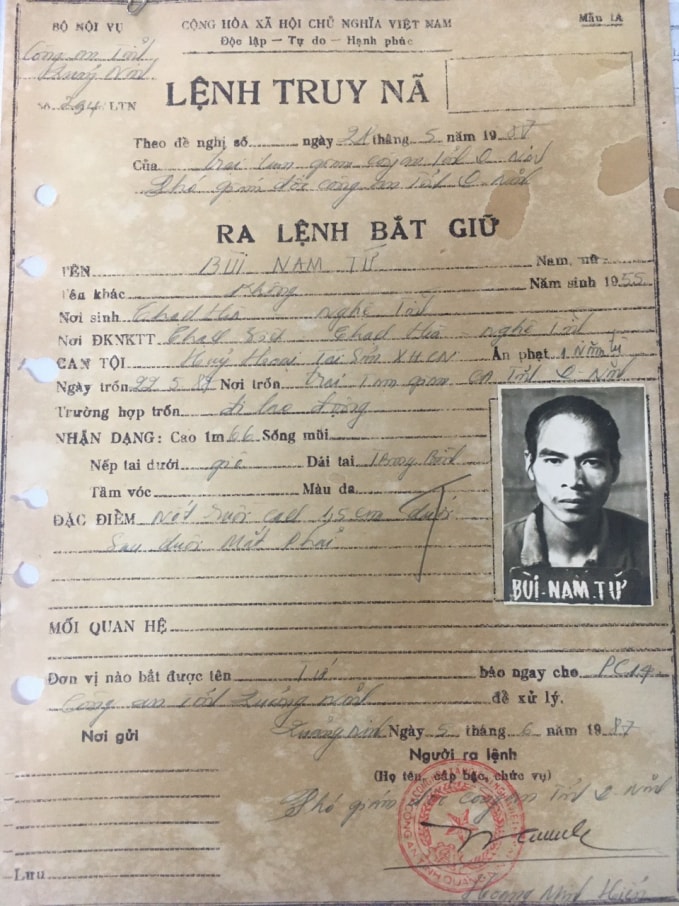 BỘ NỘI VỤ
CỘNG HÒA XÃ HỘI CHỦ NGHĨA VIỆT NAM
Mẫu 1A
Độc lập — Tự do — Hạnh phúc
Công an Tỉnh
Quảng Ninh
Số LTN
LỆNH TRUY NÃ
Theo đề nghị số ngày 28 tháng 5 năm 1987
Của trại tạm giam công an Tỉnh Q. Ninh
Phó giám đốc công an Tỉnh Q. Ninh
RA LỆNH BẮT GIỮ
TÊN BÙI NAM TỨ Nam, nữ
Tên khác Không Năm sinh 1955
Nơi sinh Nghệ Tĩnh
Nơi ĐKNKTT Nghệ Tĩnh
CAN TỘI Huỷ Hoại Tài Sản XHCN Án phạt 1 Năm
Ngày trốn 22.5.87 Nơi trốn trại Tạm giam CA Tỉnh Q. Ninh
Trường hợp trốn đi lao động
NHẬN DẠNG: Cao 1m 66 Sống mũi
Nếp tai dưới Dái tai
Tầm vóc Màu da
ĐẶC ĐIỂM Nốt Ruồi dưới
Sau đuôi Mắt Phải
BÙI-NAM TỨ
MỐI QUAN HỆ
Đơn vị nào bắt được tên Tứ báo ngay cho PC14
Công an Tỉnh Quảng Ninh để xử lý.
Nơi gửi
Quảng Ninh Ngày 5 tháng 6 năm 1987
Người ra lệnh
(Họ tên, cấp bậc, chức vụ)
Phó giám đốc công an Tỉnh Q. Ninh
Lưu